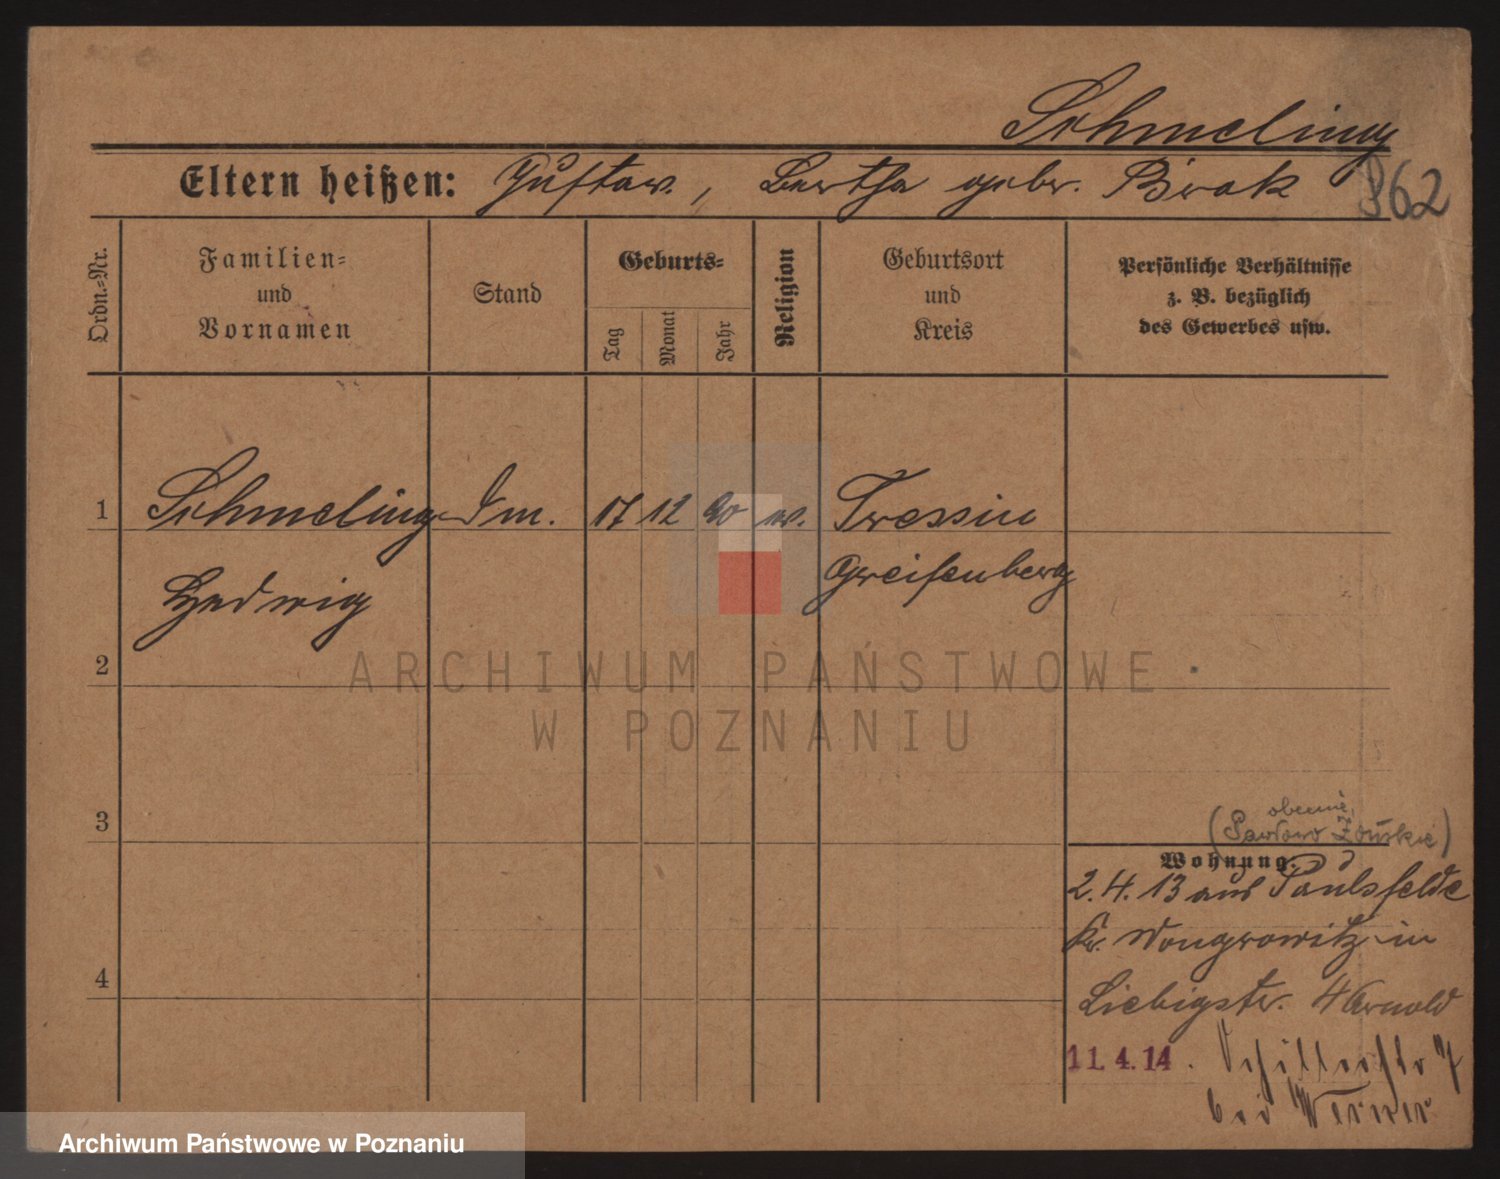 Schmeling
Eltern heißen: Gustav, Bertha gebr. Brok
862
Ordn.-Nr.
Familien-
und
Vornamen
Stand
Geburts-
Tag
Monat
Jahr
Religion
Geburtsort
und
Kreis
Persönliche Verhältnisse
z. B. bezüglich
des Gewerbes usw.
1 Schmeling 17 12 90 Tressin
Hedwig Greifenberg
2
ARCHIWUM PAŃSTWOWE
W POZNANIU
3
(obecnie
Pawłowo Żońskie)
Wohnung.
2. 4. 13 aus Paulsfelde
Kr. Wongrowitz in
4
Liebigstr. 4 Arnold
11. 4. 14. Schillerstr 7
bei Werner
Archiwum Państwowe w Poznaniu